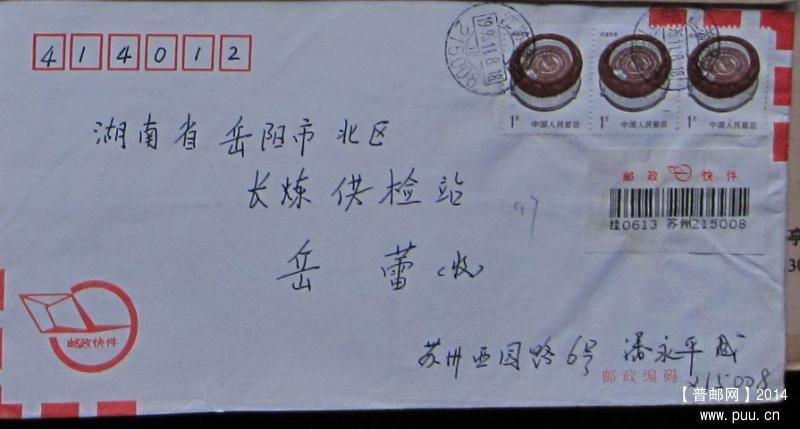 414012
湖南省岳阳市北区
长炼供检站
岳蕾(收)
中国人民邮政
中国人民邮政
中国人民邮政
邮政快件
挂0613 苏州215008
97
邮政快件
苏州西园路6号 潘永平
邮政编码
215008
【普邮网】2014
www.puu.cn